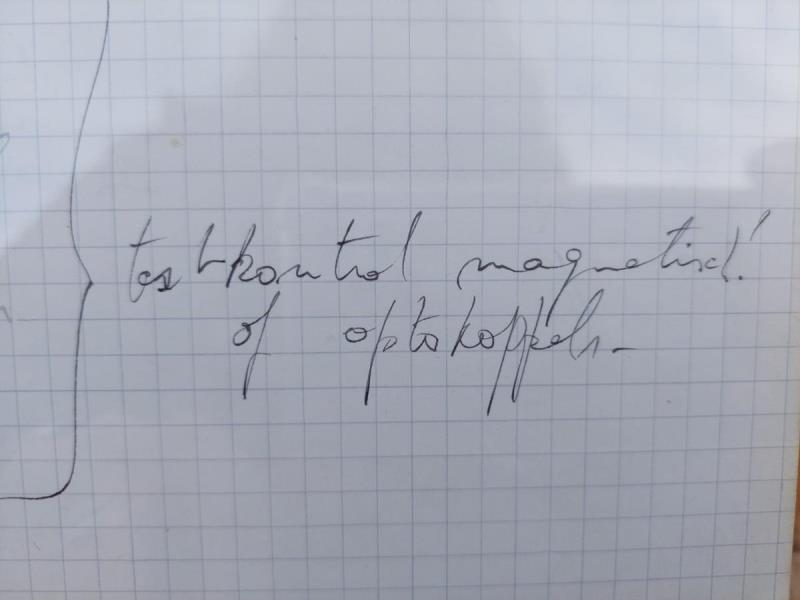 testkontrol magnetisch!
of optokoppels.